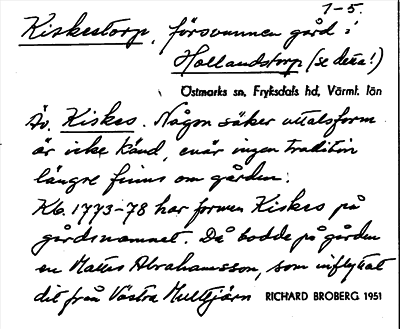 1-5.
Kiskestorp, försvunnen gård i
Hollandstorp (se detta!)
Östmarks sn, Fryksdals hd, Värml. län
Äv. Kiskes. Någon säker uttalsform
är icke känd, enär ingen tradition
längre finns om gården.
Kb. 1773-78 har formen Kiskes på
gårdsnamnet. Då bodde på gården
en Mattes Abrahamsson, som inflyttat
dit från Västra Multjärn RICHARD BROBERG 1951